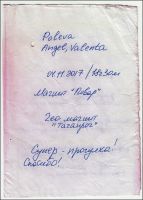 Poleva
Angel, Valenta
04.11.2017 /
Магнит "Повар"
Гео магнит
"Таганрог"
Супер - прогулка!
Спасибо!